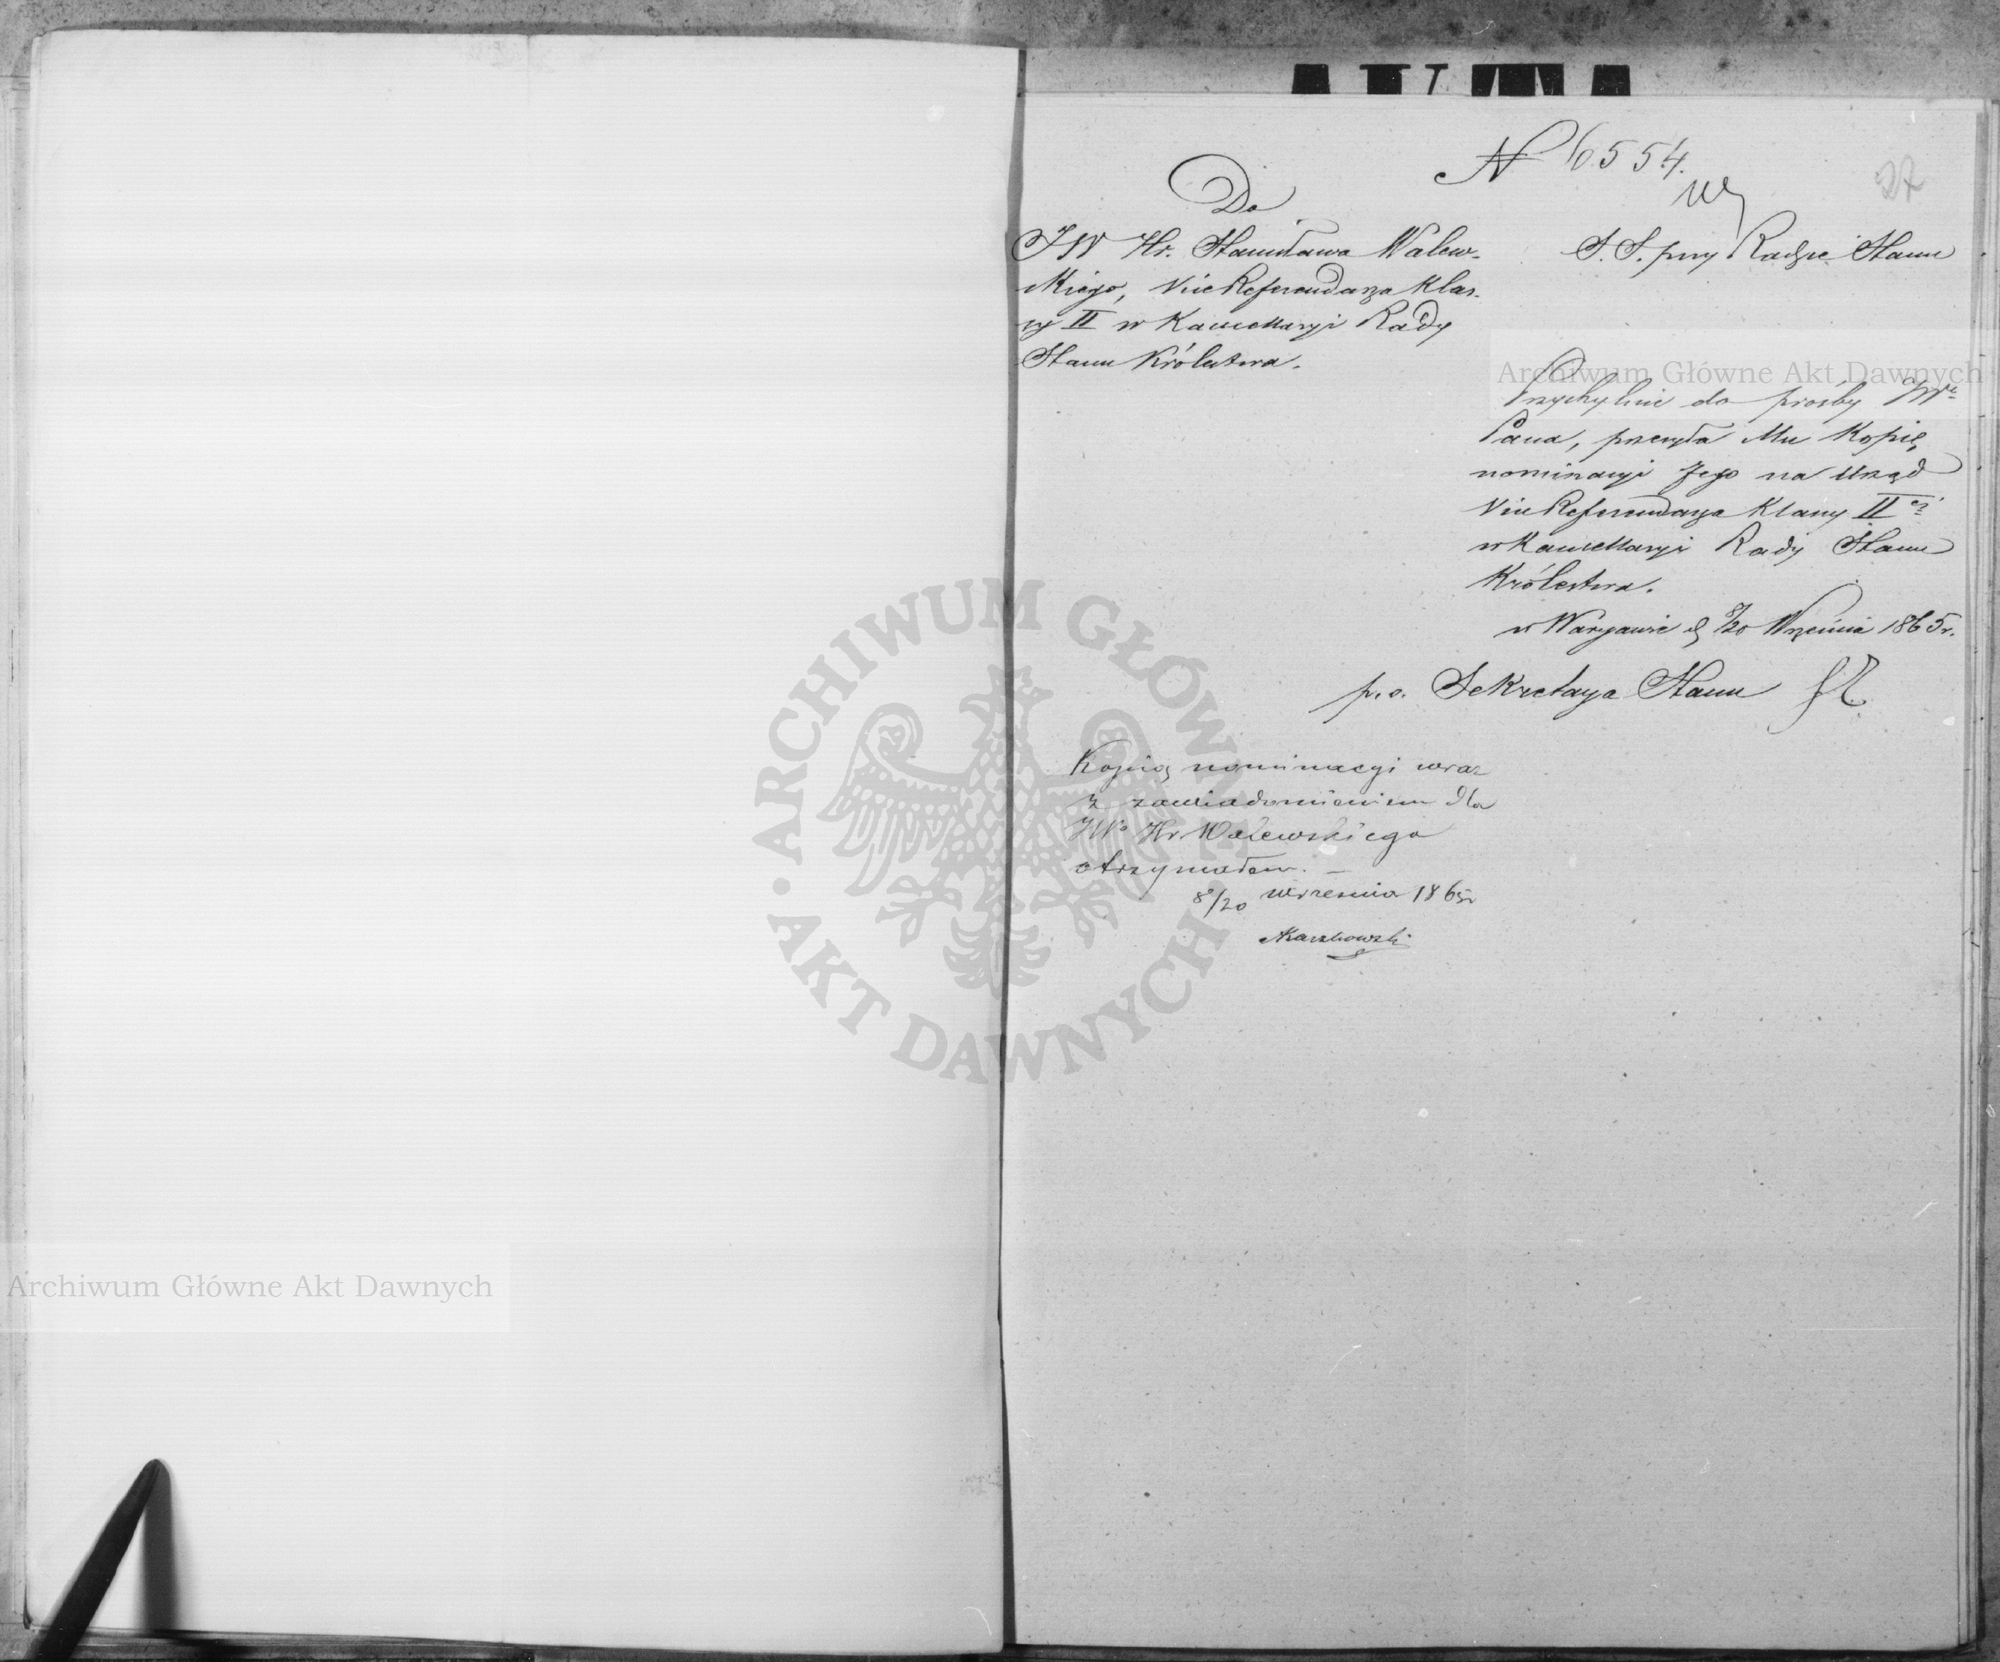 N 6554.
27
Do
JW Hr. Stanisława Walew-
skiego, ViceReferendarza Klas-
sy II w Kancellaryi Rady
Stanu Królestwa.
S. S. przy Radzie Stanu
Przychylnie do prośby JWo
Pana, przesyła Mu Kopię
nominacyi Jego na Urząd
ViceReferendarza Klassy IIej
w Kancellaryi Rady Stanu
Królestwa.
w Warszawie d 8/20 Września 1865 r.
p. o. Sekretarza Stanu
Kopią nominacyi wraz
z zawiadomieniem dla
JWo Hr Walewskiego
otrzymałem. —
8/20 września 1865 r
Archiwum Główne Akt Dawnych
ARCHIWUM GŁÓWNE • AKT DAWNYCH •
Archiwum Główne Akt Dawnych